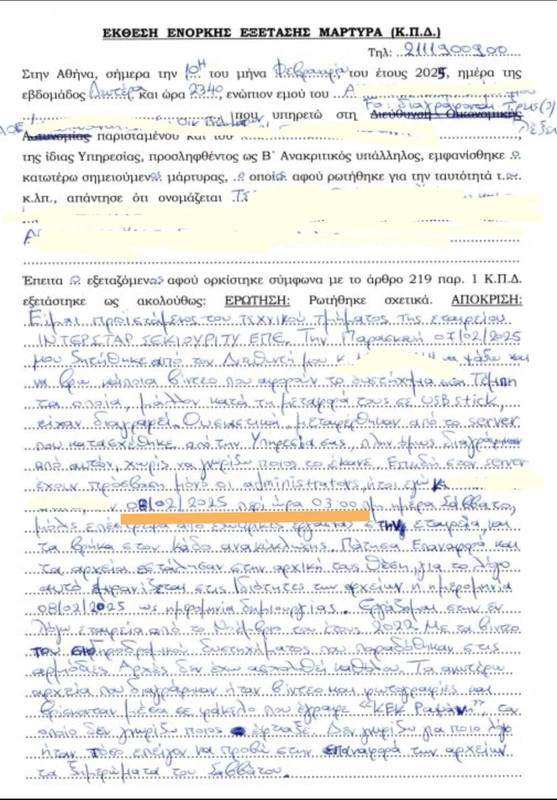 ΕΚΘΕΣΗ ΕΝΟΡΚΗΣ ΕΞΕΤΑΣΗΣ ΜΑΡΤΥΡΑ (Κ.Π.Δ.)
Τηλ: 2111900900
Στην Αθήνα, σήμερα την 10η του μήνα Φεβρουαρίου του έτους 2025, ημέρα της
εβδομάδος Δευτέρα και ώρα 2340, ενώπιον εμού του Α
που υπηρετώ στη Διεύθυνση Οικονομικής
Αστυνομίας παρισταμένου και του
της ίδιας Υπηρεσίας, προσληφθέντος ως Β΄ Ανακριτικός υπάλληλος, εμφανίσθηκε ο
κατωτέρω σημειούμενος μάρτυρας, ο οποίος αφού ρωτήθηκε για την ταυτότητά του
κ.λπ., απάντησε ότι ονομάζεται
Έπειτα ο εξεταζόμενος αφού ορκίστηκε σύμφωνα με το άρθρο 219 παρ. 1 Κ.Π.Δ.
εξετάστηκε ως ακολούθως: ΕΡΩΤΗΣΗ: Ρωτήθηκε σχετικά. ΑΠΟΚΡΙΣΗ:
Είμαι προϊστάμενος του τεχνικού τμήματος της εταιρείας
INTERSTAR ΣΕΚΙΟΥΡΙΤΥ ΕΠΕ. Την Παρασκευή 07/02/2025
μου ζητήθηκε από τον Διευθυντή μου κ. να ψάξω και
να βρω κάποια βίντεο που αφορούν το δυστύχημα στα Τέμπη
τα οποία, μάλλον κατά τη μεταφορά τους σε USB stick,
είχαν διαγραφεί. Ουσιαστικά μεταφέρθηκαν από το server
που κατασχέθηκε από την Υπηρεσία σας, πλην όμως διαγράφηκαν
από αυτόν, χωρίς να γνωρίζω ποιος το έκανε. Επειδή στον server
έχουν πρόσβαση μόνο οι administrators, ήτοι εγώ κ
08/02/2025 περί ώρα 03:00 π.μ. ημέρα Σάββατο,
μόλις επέστρεψα από εξωτερικές εργασίες στην εταιρεία, και
τα βρήκα στον κάδο ανακύκλωσης. Πάτησα Επαναφορά και
τα αρχεία εστάλησαν στην αρχική τους θέση, για το λόγο
αυτό εμφανίζεται στις ιδιότητες των αρχείων η ημερομηνία
08/02/2025 ως ημερομηνία δημιουργίας. Εργάζομαι στην εν
λόγω εταιρεία από το Νοέμβριο του έτους 2022. Με τα βίντεο
του σιδηροδρομικού δυστυχήματος που παραδόθηκαν στις
αρμόδιες Αρχές δεν έχω ασχοληθεί καθόλου. Τα ανωτέρω
αρχεία που διαγράφηκαν ήταν βίντεο και φωτογραφίες και
βρίσκονταν μέσα σε φάκελο που έγραφε "ΚΕΚ Ραψάνη", το
οποίο δεν γνωρίζω ποιος έφτιαξε. Δεν γνωρίζω για ποιο λόγο
ήταν τόσο επείγον να προβώ στην επαναφορά των αρχείων
τα ξημερώματα του Σαββάτου.